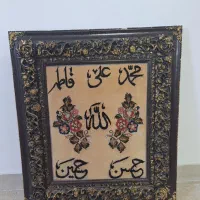 محمد علی فاطمه
الله
حسن حسین